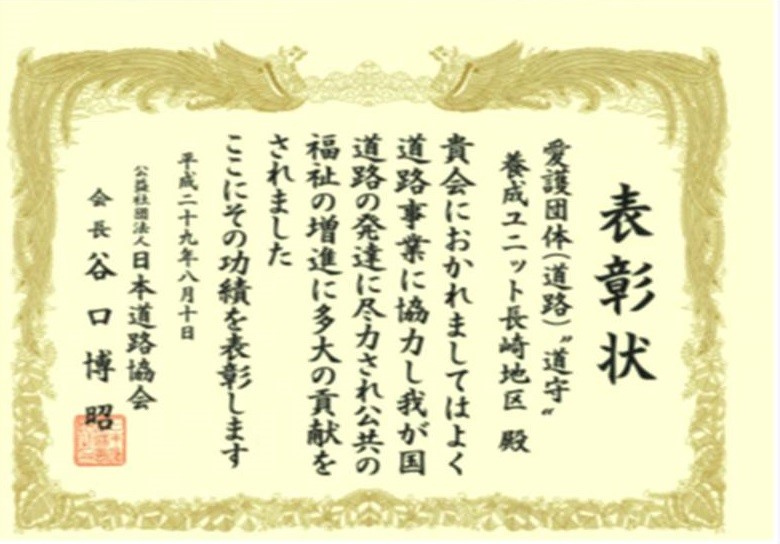 表彰状
愛護団体(道路)〝道守〟
養成ユニット長崎地区 殿
貴会におかれましてはよく
道路事業に協力し我が国
道路の発達に尽力され公共の
福祉の増進に多大の貢献を
されました
ここにその功績を表彰します
平成二十九年八月十日
公益社団法人日本道路協会
会長 谷口博昭